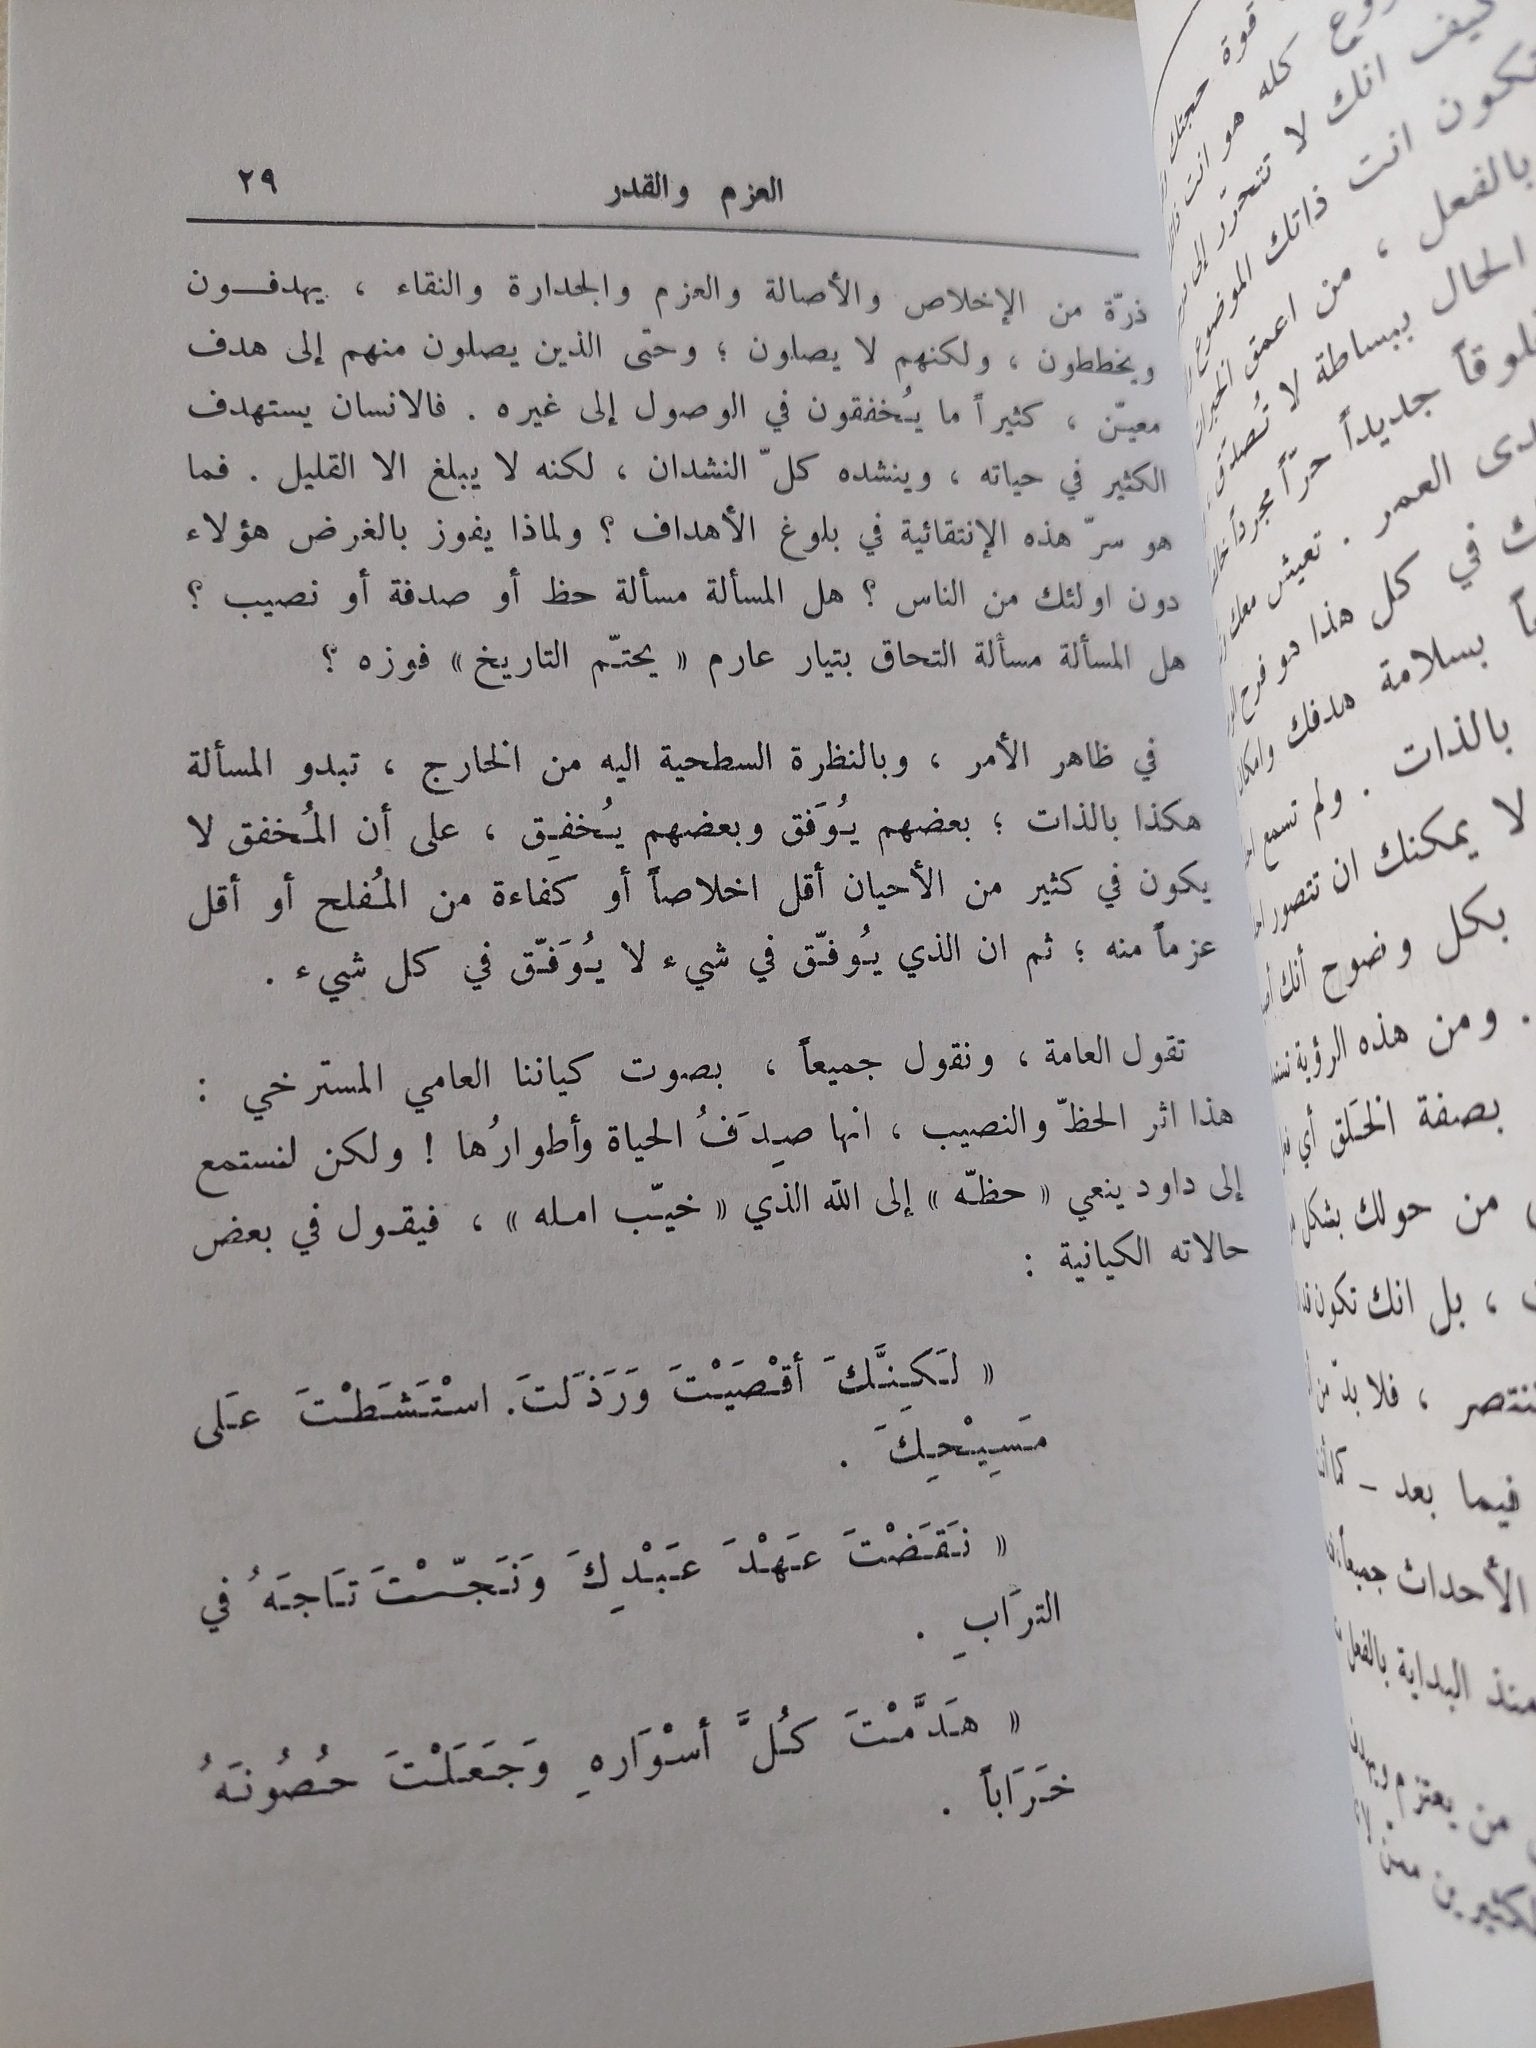 العزم والقدر ٢٩
ذرّة من الإخلاص والأصالة والعزم والجدارة والنقاء ، يهدفون
ويخططون ، ولكنهم لا يصلون ؛ وحتى الذين يصلون منهم إلى هدف
معيّن ، كثيراً ما يُخفقون في الوصول إلى غيره . فالانسان يستهدف
الكثير في حياته ، وينشده كلّ النشدان ، لكنه لا يبلغ الا القليل . فما
هو سرّ هذه الإنتقائية في بلوغ الأهداف ؟ ولماذا يفوز بالغرض هؤلاء
دون اولئك من الناس ؟ هل المسألة مسألة حظ أو صدفة أو نصيب ؟
هل المسألة مسألة التحاق بتيار عارم « يحتّم التاريخ » فوزه ؟
في ظاهر الأمر ، وبالنظرة السطحية اليه من الخارج ، تبدو المسألة
هكذا بالذات ؛ بعضهم يُوَفق وبعضهم يُخفِق ، على أن المُخفق لا
يكون في كثير من الأحيان أقل اخلاصاً أو كفاءة من المُفلح أو أقل
عزماً منه ؛ ثم ان الذي يُوفّق في شيء لا يُوَفّق في كل شيء .
تقول العامة ، ونقول جميعاً ، بصوت كياننا العامي المسترخي :
هذا اثر الحظّ والنصيب ، انها صِدَفُ الحياة وأطوارُها ! ولكن لنستمع
إلى داود ينعي « حظّه » إلى الله الذي « خيّب امله » ، فيقول في بعض
حالاته الكيانية :
« لَكِنَّكَ أقْصَيْتَ وَرَذَلتَ. اسْتَشَطْتَ عَلى
مَسِيْحِكَ .
« نَقَضْتَ عَهْدَ عَبْدِكَ وَنَجّسْتَ تَاجَهُ في
الترَابِ .
« هَدَّمْتَ كُلَّ أسْوَارهِ وَجَعَلْتَ حُصُونَهُ
خَرَاباً .
قوة حجتك
كله هو انت
كيف انك لا تتحرّر إلى
تكون انت ذاتك الموضوع
بالفعل ، من اعمق
الحال ببساطة لا تُصدّق
جديداً حرّاً مجرداً
العمر . تعيش معك
في كل هذا هو فرح
بسلامة هدفك
بالذات . ولم تسمع
لا يمكنك ان تتصور
بكل وضوح أنك
. ومن هذه الرؤية
بصفة الخَلق أي
من حولك بشكل
، بل انك تكون
، فلا بدّ من
فيما بعد – كما
الأحداث جميعاً
منذ البداية بالفعل
من يعتزم